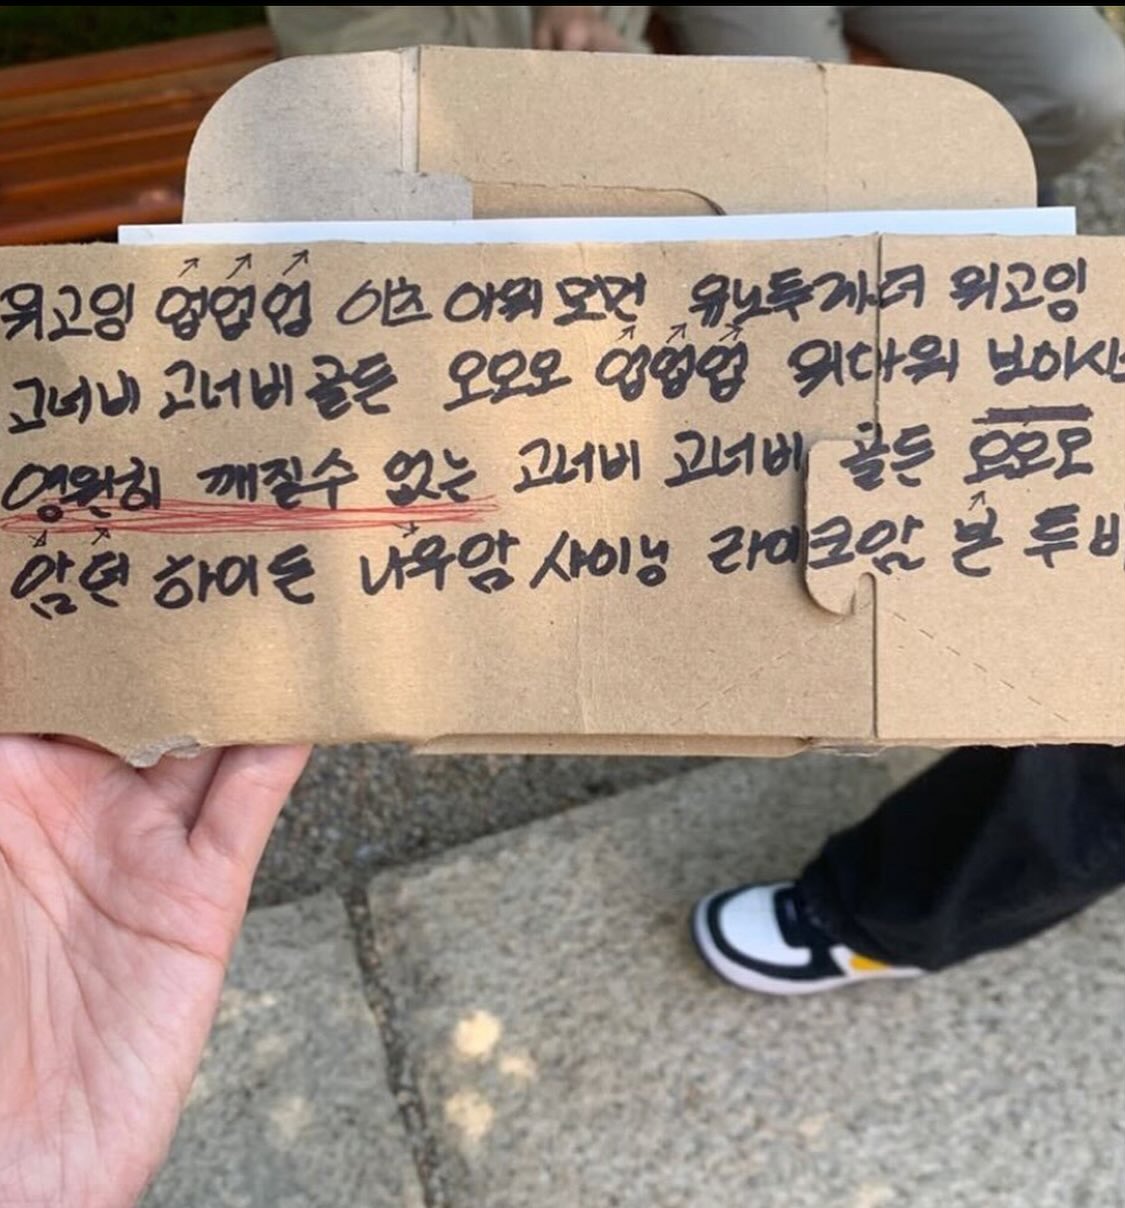 위고잉 업업업 이츠 아워 모먼 유노투게더 위고잉
고너비 고너비 골든 오오오 업업업 위다워 보아시스
영원히 깨질수 없는 고너비 고너비 골든 오오오
암던 하이든 나우암 사이닝 라이크암 본 투비